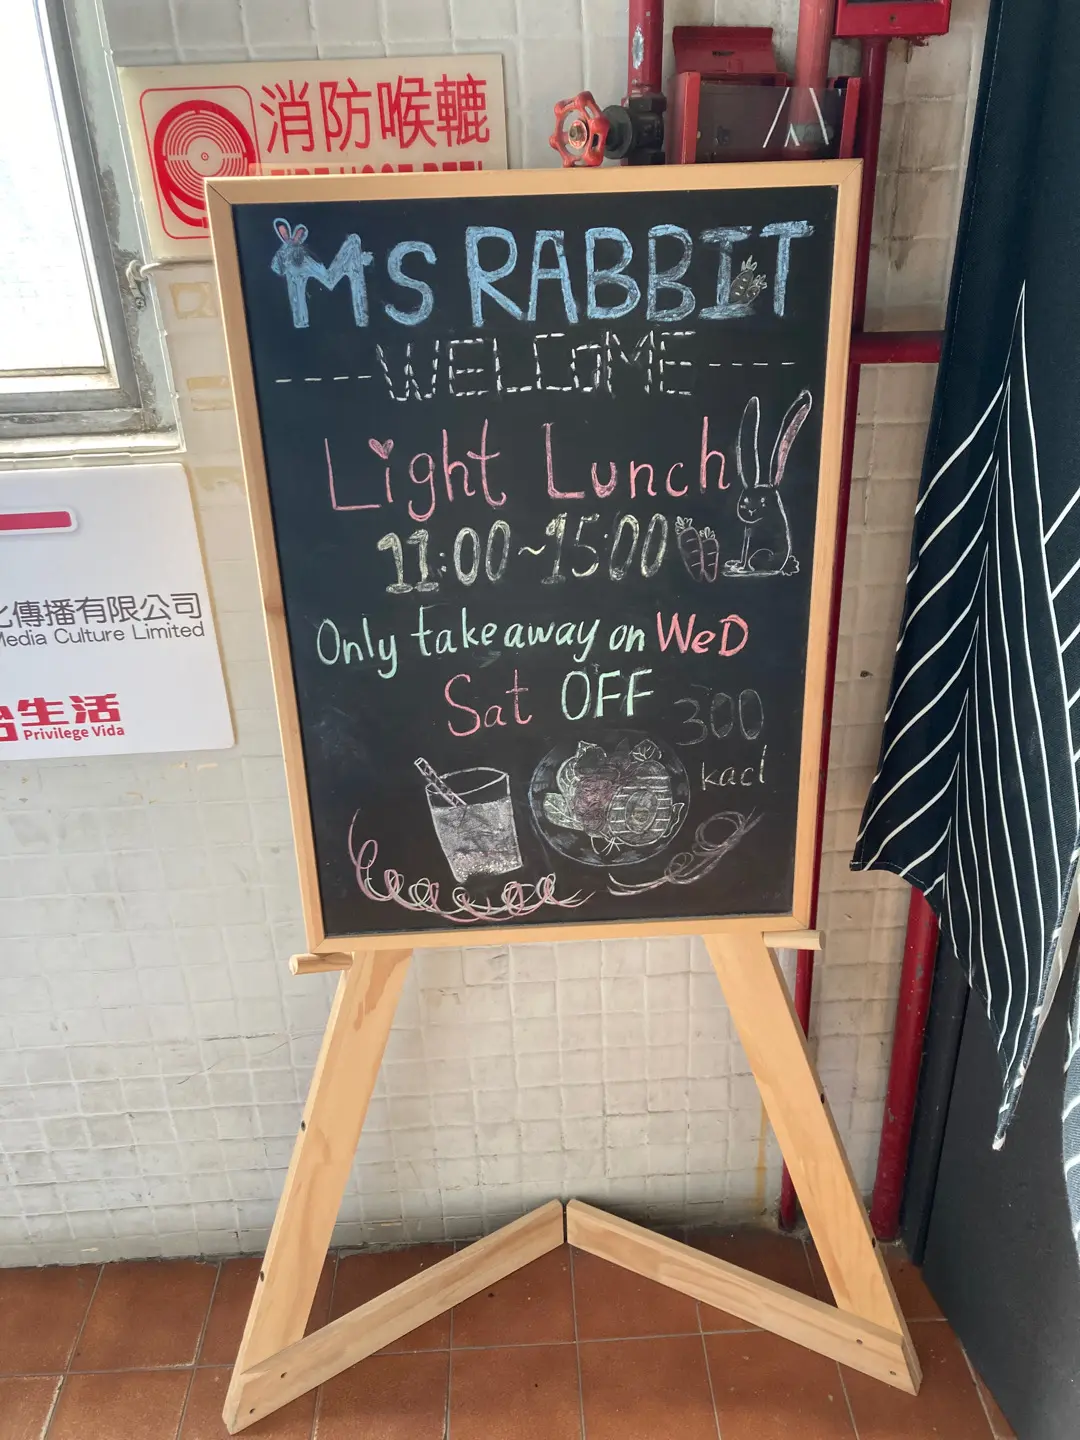 消防喉轆
FIRE HOSE REEL
MS RABBIT
WELCOME
Light Lunch
11:00~15:00
Only takeaway on WeD
Sat OFF
300
kacl
化傳播有限公司
Media Culture Limited
生活
Privilege Vida